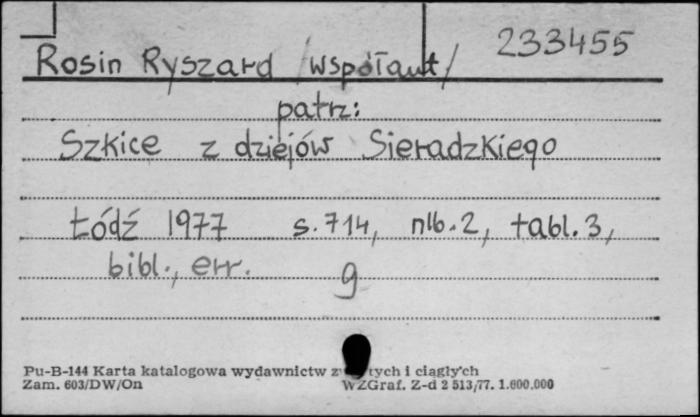 233455
Rosin Ryszard /współaut/
patrz:
Szkice z dziejów Sieradzkiego
Łódź 1977 s. 714, nlb. 2, tabl. 3,
bibl., err.
g
Pu-B-144 Karta katalogowa wydawnictw z tych i ciągłych
Zam. 603/DW/On WZGraf. Z-d 2 513/77. 1.600.000